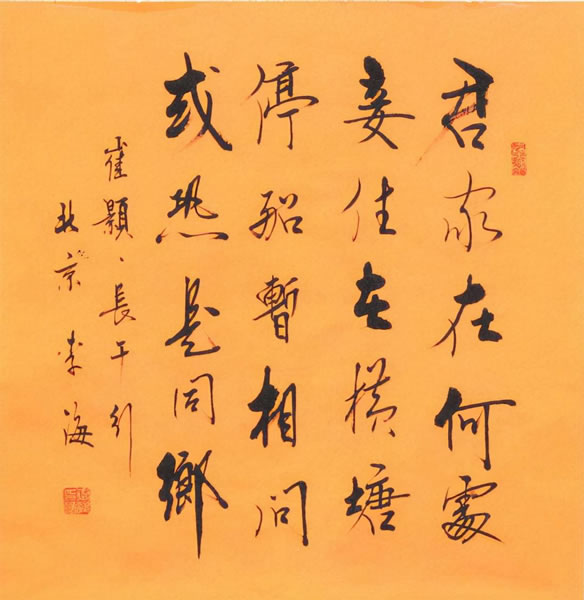 君家在何處
妾住在横塘
停船暫相問
或恐是同鄉
崔顥、長干行
北京 李海